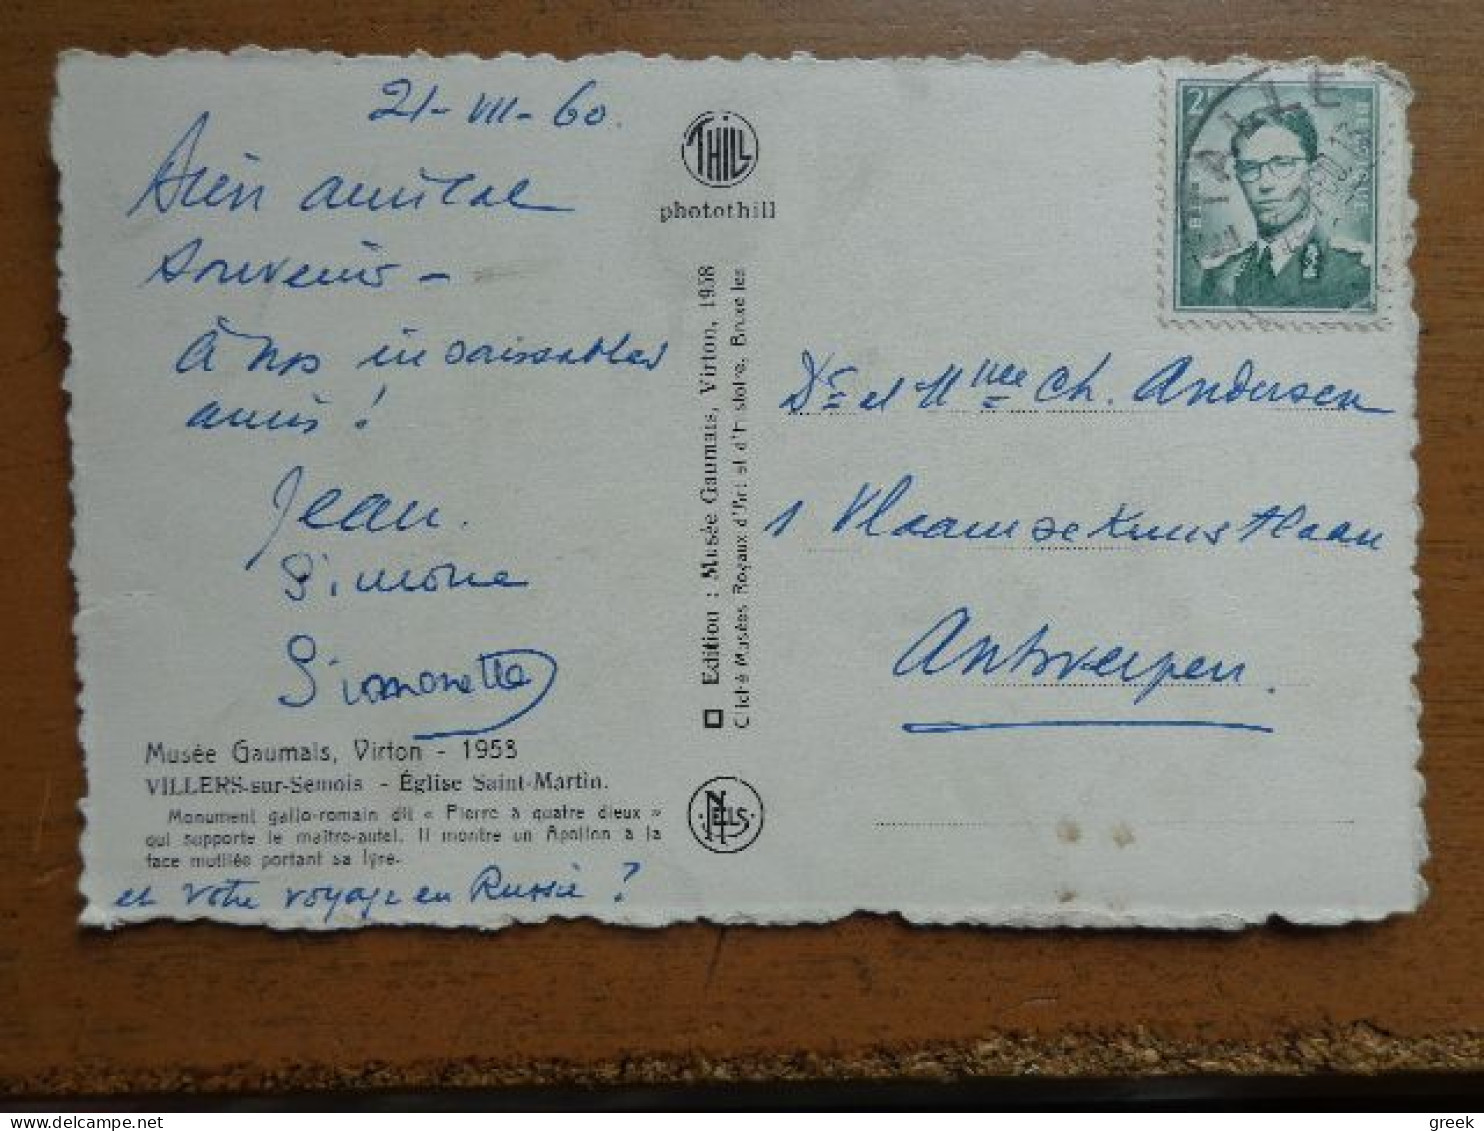 21-VII-60.
Bien amical
souvenir -
à nos insaisissables
amis !
Jean.
Simone
Simonetta
Musée Gaumais, Virton - 1958
VILLERS-sur-Semois - Église Saint-Martin.
Monument gallo-romain dit « Pierre à quatre dieux »
qui supporte le maître-autel. Il montre un Apollon à la
face mutilée portant sa lyre.
et votre voyage en Russie ?
THILL
photothill
Edition : Musée Gaumais, Virton, 1958
Cliché Musées Royaux d'Art et d'Histoire, Bruxelles
NELS
2F
BELGIE
BELGIQUE
Dr et Mme Ch. Andersen
1 Vlaamse Kunstlaan
Antwerpen.